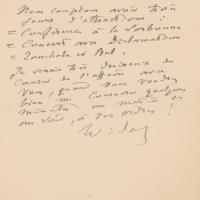 Nous comptons avoir trois
jours d'attractions :
= Conférence à la Sorbonne
= Concert avec Déclamation
= Tombola et Bal.
Je serais très désireux de
causer de l'affaire avec
vous, quand vous voudrez
bien me consacrer quelques
minutes un matin
ou soir, à vos ordres !